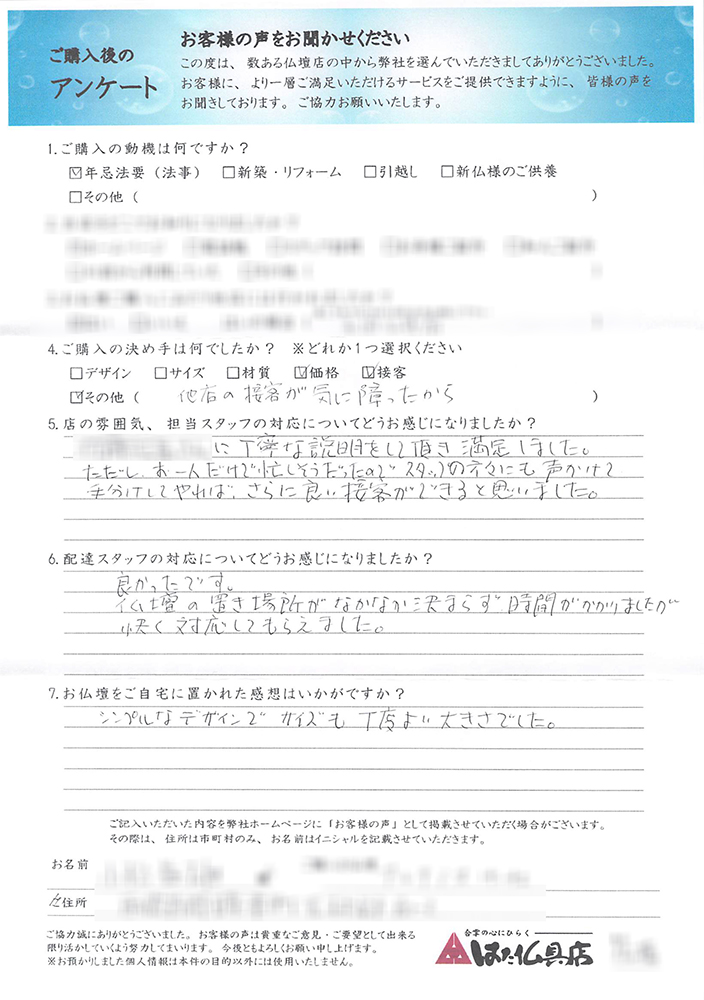 ご購入後の
アンケート
お客様の声をお聞かせください
この度は、数ある仏壇店の中から弊社を選んでいただきましてありがとうございました。
お客様に、より一層ご満足いただけるサービスをご提供できますように、皆様の声を
お聞きしております。ご協力お願いいたします。
1.ご購入の動機は何ですか？
☑年忌法要（法事） □新築・リフォーム □引越し □新仏様のご供養
□その他（ ）
4.ご購入の決め手は何でしたか？ ※どれか1つ選択ください
□デザイン □サイズ □材質 ☑価格 ☑接客
☑その他（ 他店の接客が気に障ったから ）
5.店の雰囲気、担当スタッフの対応についてどうお感じになりましたか？
に丁寧な説明をして頂き満足しました。
ただし、お一人だけで忙しそうだったのでスタッフの方々にも声かけて
手分けしてやれば、さらに良い接客ができると思いました。
6.配達スタッフの対応についてどうお感じになりましたか？
良かったです。
仏壇の置き場所がなかなか決まらず、時間がかかりましたが
快く対応してもらえました。
7.お仏壇をご自宅に置かれた感想はいかがですか？
シンプルなデザインでサイズも丁度よい大きさでした。
ご記入いただいた内容を弊社ホームページに「お客様の声」として掲載させていただく場合がございます。
その際は、住所は市町村のみ、お名前はイニシャルを記載させていただきます。
お名前
ご住所
ご協力誠にありがとうございました。お客様の声は貴重なご意見・ご要望として出来る
限り活かしていくよう努力してまいります。今後ともよろしくお願い申し上げます。
※お預かりしました個人情報は本件の目的以外には使用いたしません。
合掌の心にひらく
はた仏具店